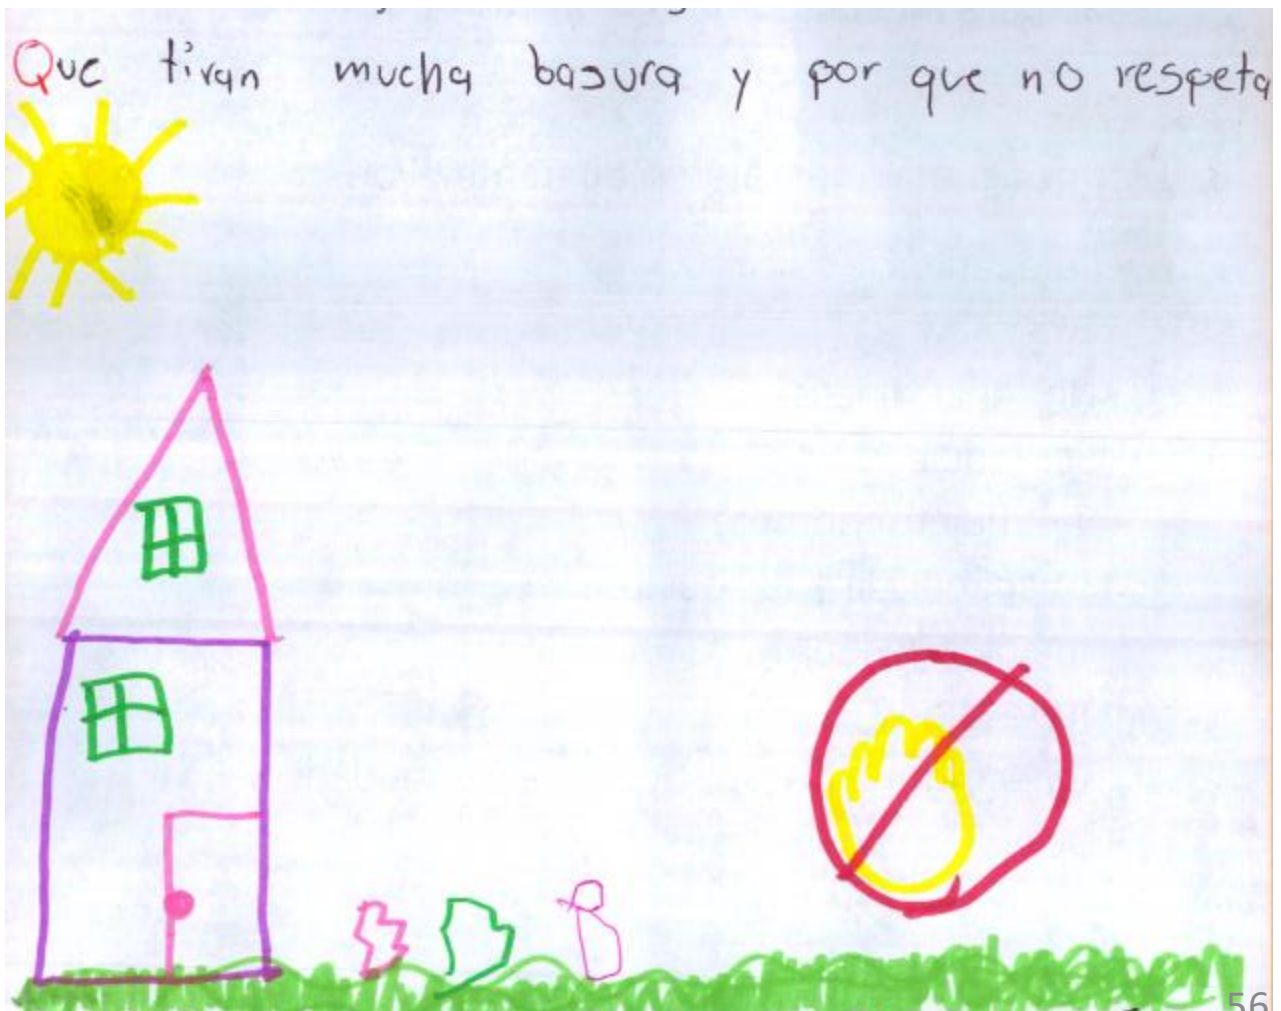 Que tiran mucha basura y por que no respeta
56